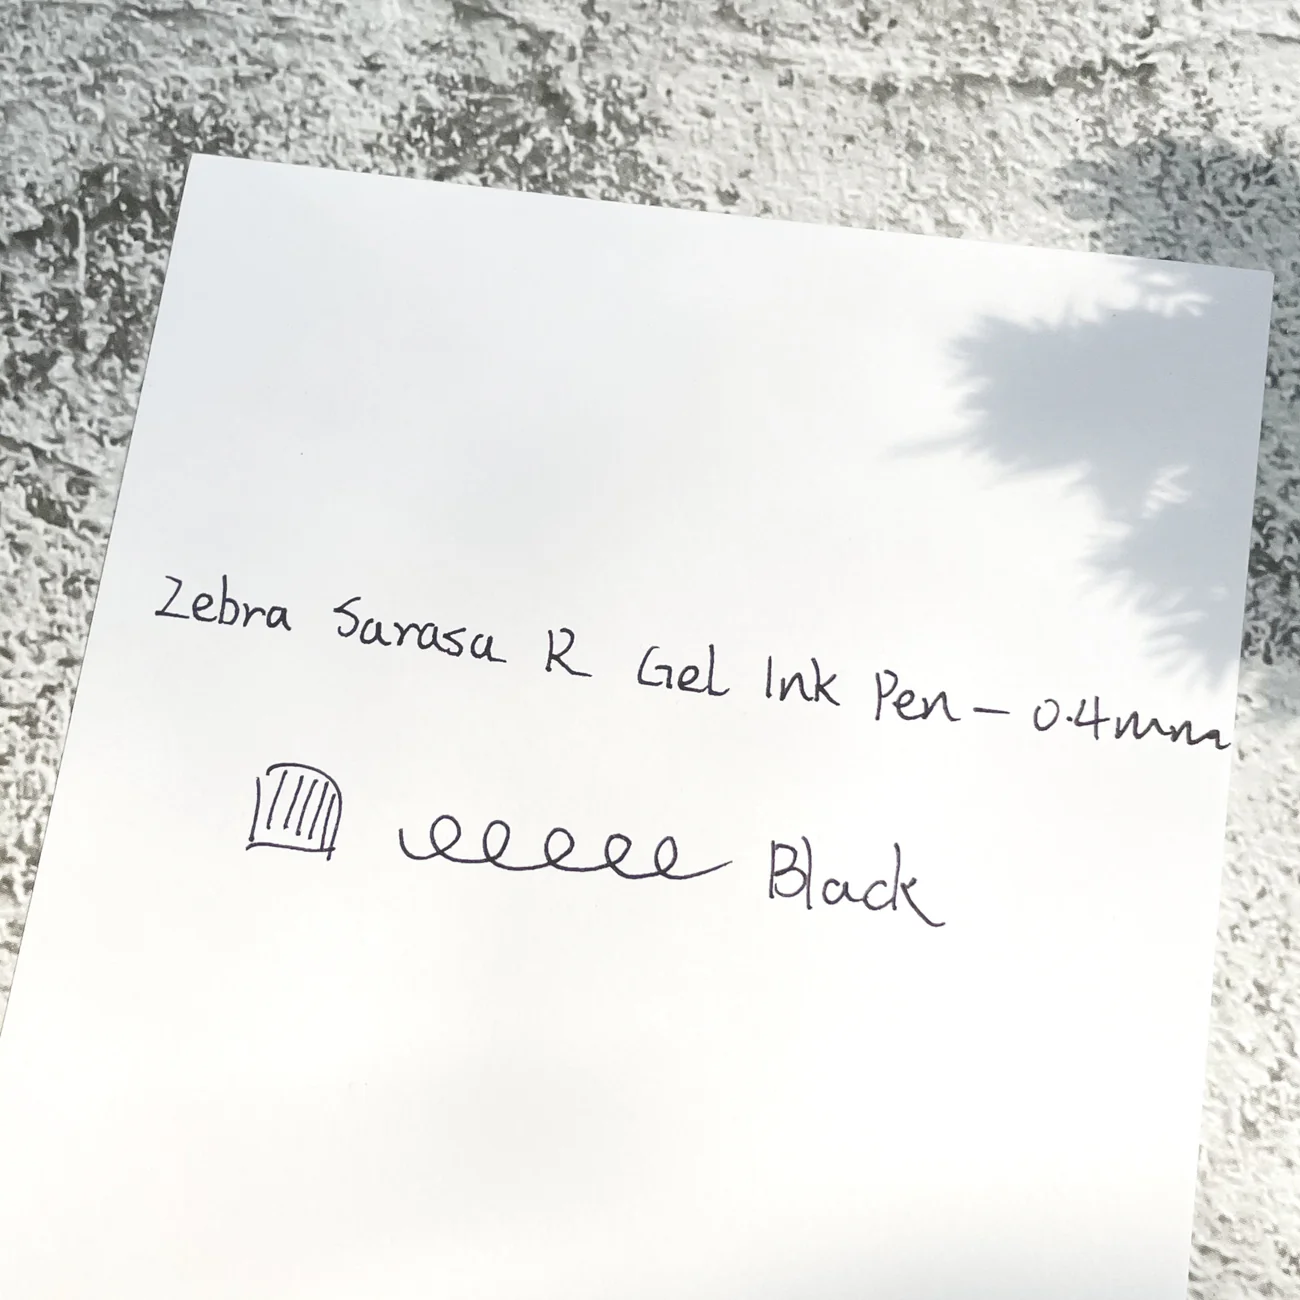 Zebra Sarasa R Gel Ink Pen - 0.4mm
Black